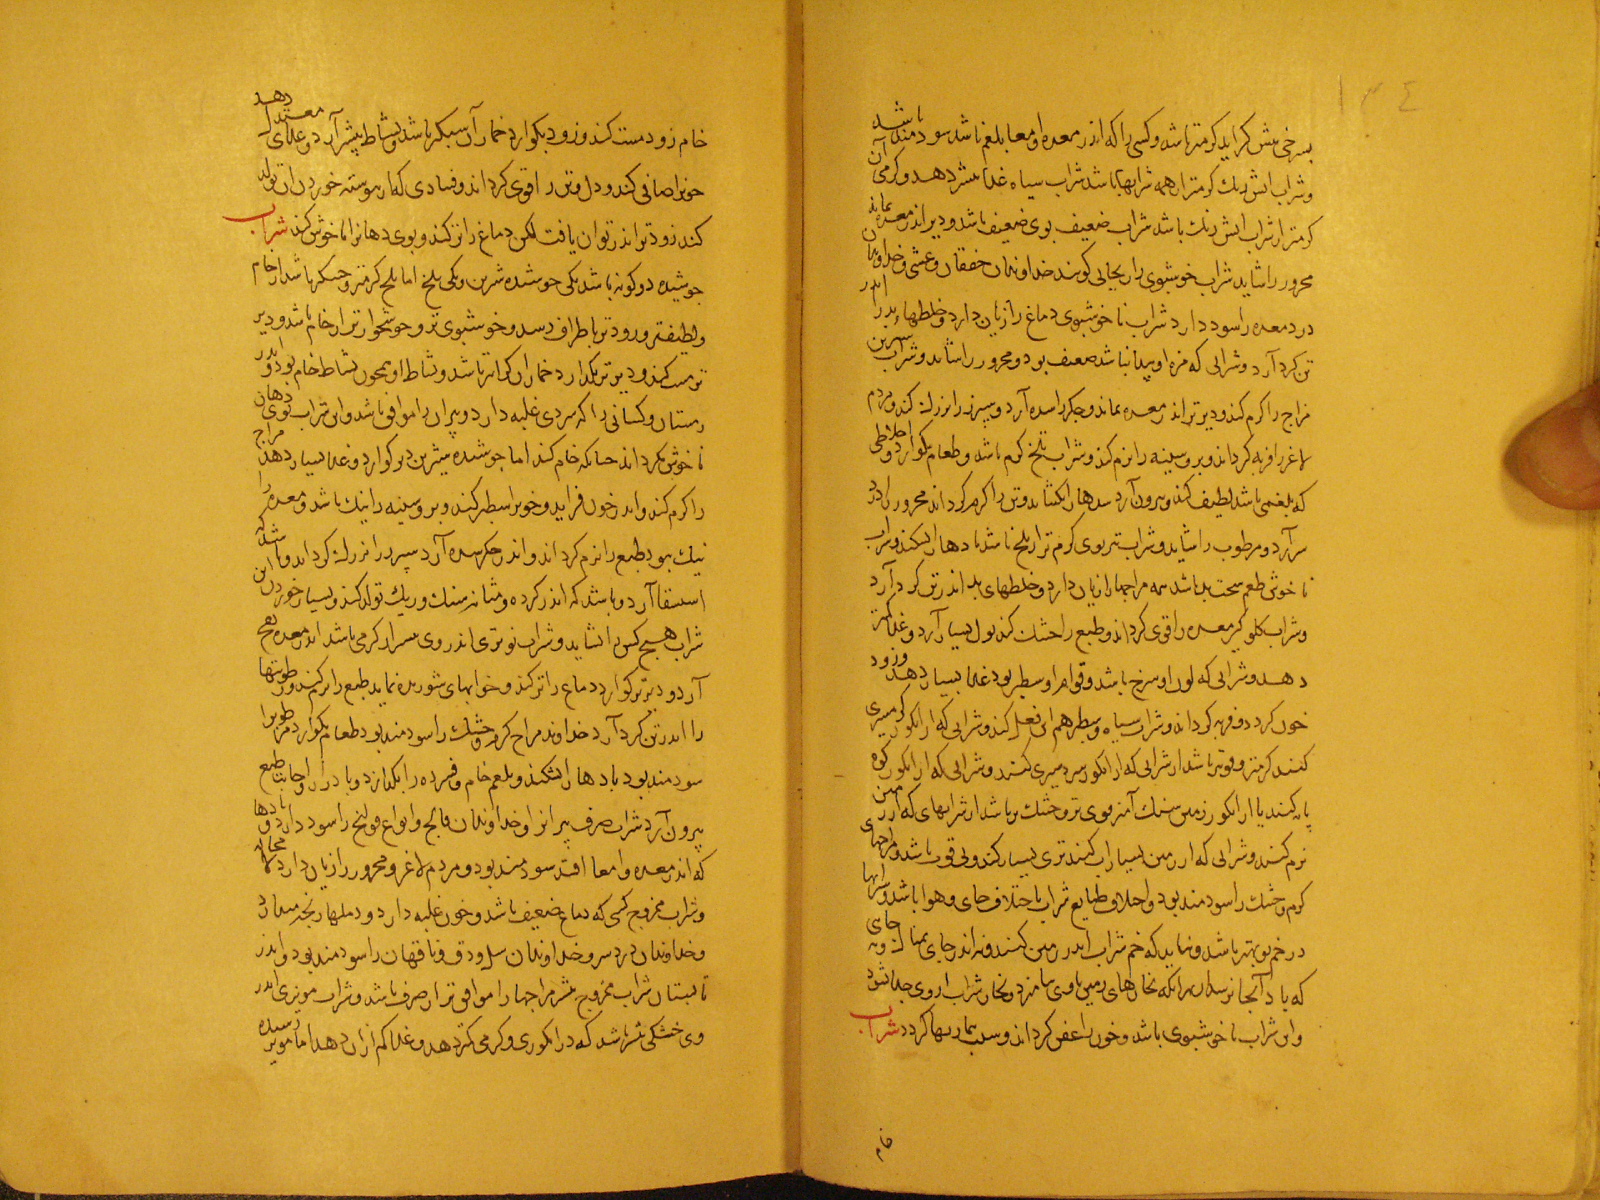 ١٣٤
بسرخی بیش گراید گرمتر باشد و کسی را که اندر معده و امعا بلغم باشد سودمند باشد
و شراب آتش رنگ گرمتر از همه شرابها باشد شراب سیاه غذا بیشتر دهد و گرمی آن
کمتر از شراب آتش رنگ باشد شراب ضعیف بوی ضعیف باشد و دیر اندر معده بماند
محرور را شاید شراب خوشبوی را ریحانی گویند خداوندان خفقان و غشی و خداوندان
درد معده را سود دارد شراب ناخوشبوی دماغ را زیان دارد و خلطهاء بد را اندر
تن گرد آرد و شرابی که مزه او پیدا نباشد ضعیف بود و محرور را شاید و شراب شیرین
مزاج را گرم کند و دیرتر اندر معده بماند و جگر را سده آرد و سپرز را بزرگ کند و مردم
لاغر را فربه گرداند و بر و سینه را نرم کند و شراب تلخ گرم باشد و طعام بگوارد و خلطی
که بلغمی باشد لطیف کند و بیرون آرد سدها را بگشاید و تن را گرم گرداند محرور را درد
سر آرد و مرطوب را شاید و شراب تیزبوی گرم تر از تلخ باشد بادها را بشکند و شراب
ناخوش طعم سخت بد باشد همه مزاجها را زیان دارد و خلطهای بد اندر تن گرد آرد
و شراب گلوگیر معده را قوی گرداند و طبع را خشک کند بول بسیار آرد و غذا کمتر
دهد و شرابی که لون او سرخ باشد و قوام او سطبر بود غذا بسیار دهد و زود
خون گردد و فربه گرداند و شراب سیاه و سطبر هم این فعل کند و شرابی که از انگور گرمسیری
کنند گرمتر و قویتر باشد از شرابی که از انگور سردسیری کنند و شرابی که از انگور کوه
پایه کنند یا از انگور زمین سنگ آمیز قوی تر و خشک تر باشد از شرابهای که از زمین
نرم کنند و شرابی که از زمین بسیار آب کنند تری بسیار کند و بی قوت باشد و مزاجهای
گرم و خشک را سودمند بود و اختلاف طبایع شراب باختلاف جای و هوا باشد و شرابها
در خم نو بهتر باشد و نباید که خم شراب اندر زمین کنند و نه اندر جای نمناک و نه جای
که باد آنجا نرسد از بهر آنکه بخارهای زمین با وی بیامیزد و بخار شراب از وی جدا نشود
و این شراب ناخوشبوی باشد و خون را عفن گرداند و سبب بیماریها گردد شراب
خام
خام زود مست کند و زود بگوارد خمار آن سبکتر باشد و نشاط بیشتر آرد و غذای معتدل دهد
خون را صافی کند و دل و تن را قوی گرداند و فسادی که از پیوسته خوردن آن تولد
کند زودتر اندر توان یافت لکن دماغ را تر کند و بوی دهان را ناخوش کند شراب
جوشیده دو گونه باشد یکی جوشیده شیرین و یکی تلخ اما تلخ گرمتر و خشکتر باشد از خام
و لطیفتر و زودتر باطراف رسد و خوشبوی تر و خوشخوارتر از خام باشد و دیر
تر مست کند و دیرتر بگذارد خمار آن گرانتر باشد و نشاط او همچون نشاط خام بود و اندر
زمستان و کسانی را که سردی غلبه دارد و پیران را موافق باشد و این شراب بوی دهان
ناخوش نگرداند چنانکه خام کند اما جوشیده شیرین دیر گوارد و غذا بسیار دهد مزاج
را گرم کند و اندر خون فزاید و خون را سطبر کند و بر و سینه را نیک باشد و معده را
نیک بود طبع را نرم گرداند و اندر جگر سده آرد سپرز را بزرگ گرداند و باشد که
استسقا آرد و باشد که اندر گرده و مثانه سنگ و ریگ تولد کند و بسیار خوردن این
شراب هیچ کس را نشاید و شراب نو تری اندر وی بیشتر از گرمی باشد اندر معده نفخ
آرد و دیرتر گوارد دماغ را تر کند و خوابهای شوریده نماید طبع را نرم کند و رطوبتها
را اندر تن گرد آرد خداوند مزاج گرم و خشک را سودمند بود طعام بگوارد مرطوب را
سودمند بود بادها را بشکند و بلغم خام و فسرده را بگدازد و باد را و اجابت طبع
بیرون آرد شراب صرف پیران را و خداوندان فالج و انواع قولنج را سود دارد و بادها
که اندر معده و امعا افتد سودمند بود و مردم لاغر و محرور را زیان دارد لا محاله
و شراب ممزوج کسی که دماغ ضعیف باشد و خون غلبه دارد و دملها رنجه میدارد
و خداوندان درد سر و خداوندان سل و دق و ناقهان را سودمند بود و اندر
تابستان شراب ممزوج بیشتر مزاجها را موافق تر از صرف باشد و شراب مویزی اندر
وی خشکی بیشتر باشد که در انگوری و گرمی کمتر دهد و غذا کم از آن دهد اما مویز رسیده